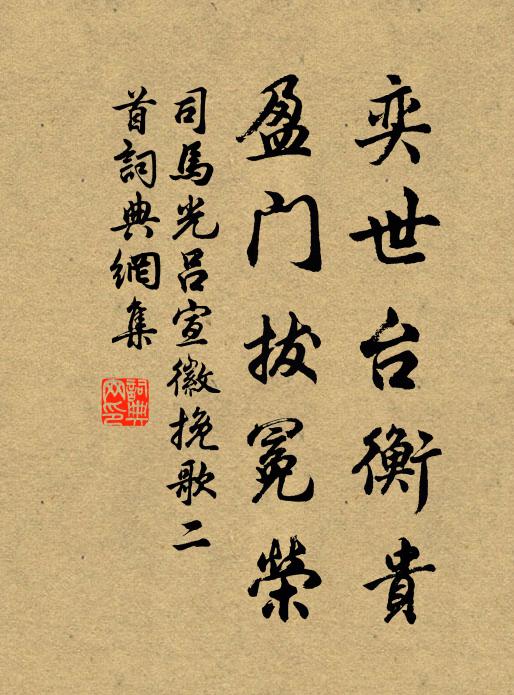 奕世台衡貴
盈門拔冕榮
司馬光呂宣徽挽歌二
首詞典網集
詞典网印